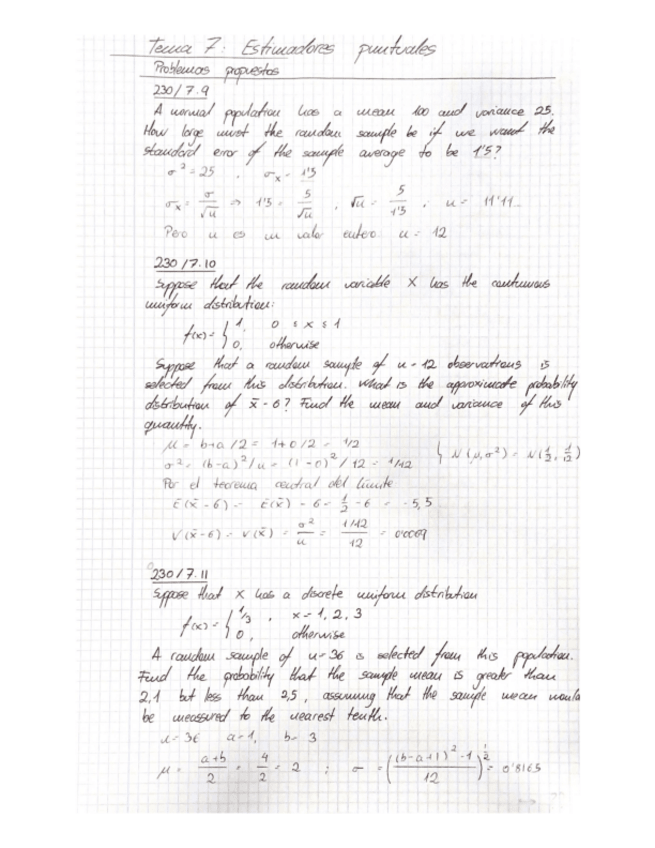 Tema 7: Estimadores puntuales
Problemas propuestos
230/7.9
A normal population has a mean 100 and variance 25.
How large must the random sample be if we want the
standard error of the sample average to be 1'5?
σ² = 25 , σx = 1'5
σx = σ/√n ⇒ 1'5 = 5/√n , √n = 5/1'5 , n = 11'11...
Pero n es un valor entero n = 12
230/7.10
Suppose that the random variable X has the continuous
uniform distribution:
f(x) = { 1, 0 ≤ x ≤ 1
0, otherwise
Suppose that a random sample of n = 12 observations is
selected from this distribution. What is the approximate probability
distribution of x̄ - 6? Find the mean and variance of this
quantity.
μ = b+a/2 = 1+0/2 = 1/2
σ² = (b-a)²/n = (1-0)²/12 = 1/12 } N(μ,σ²) = N(1/2, 1/12)
Por el teorema central del límite
E(x̄-6) = E(x̄) - 6 = 1/2 - 6 = -5,5
V(x̄-6) = V(x̄) = σ²/n = 1/12/12 = 0'0069
230/7.11
Suppose that X has a discrete uniform distribution
f(x) = { 1/3 , x = 1, 2, 3
0, otherwise
A random sample of n = 36 is selected from this population.
Find the probability that the sample mean is greater than
2,1 but less than 2,5, assuming that the sample mean would
be meassured to the nearest tenth.
n = 36 a = 1, b = 3
μ = a+b/2 = 4/2 = 2 ; σ = (((b-a+1)²-1)/12)^1/2 = 0'8165